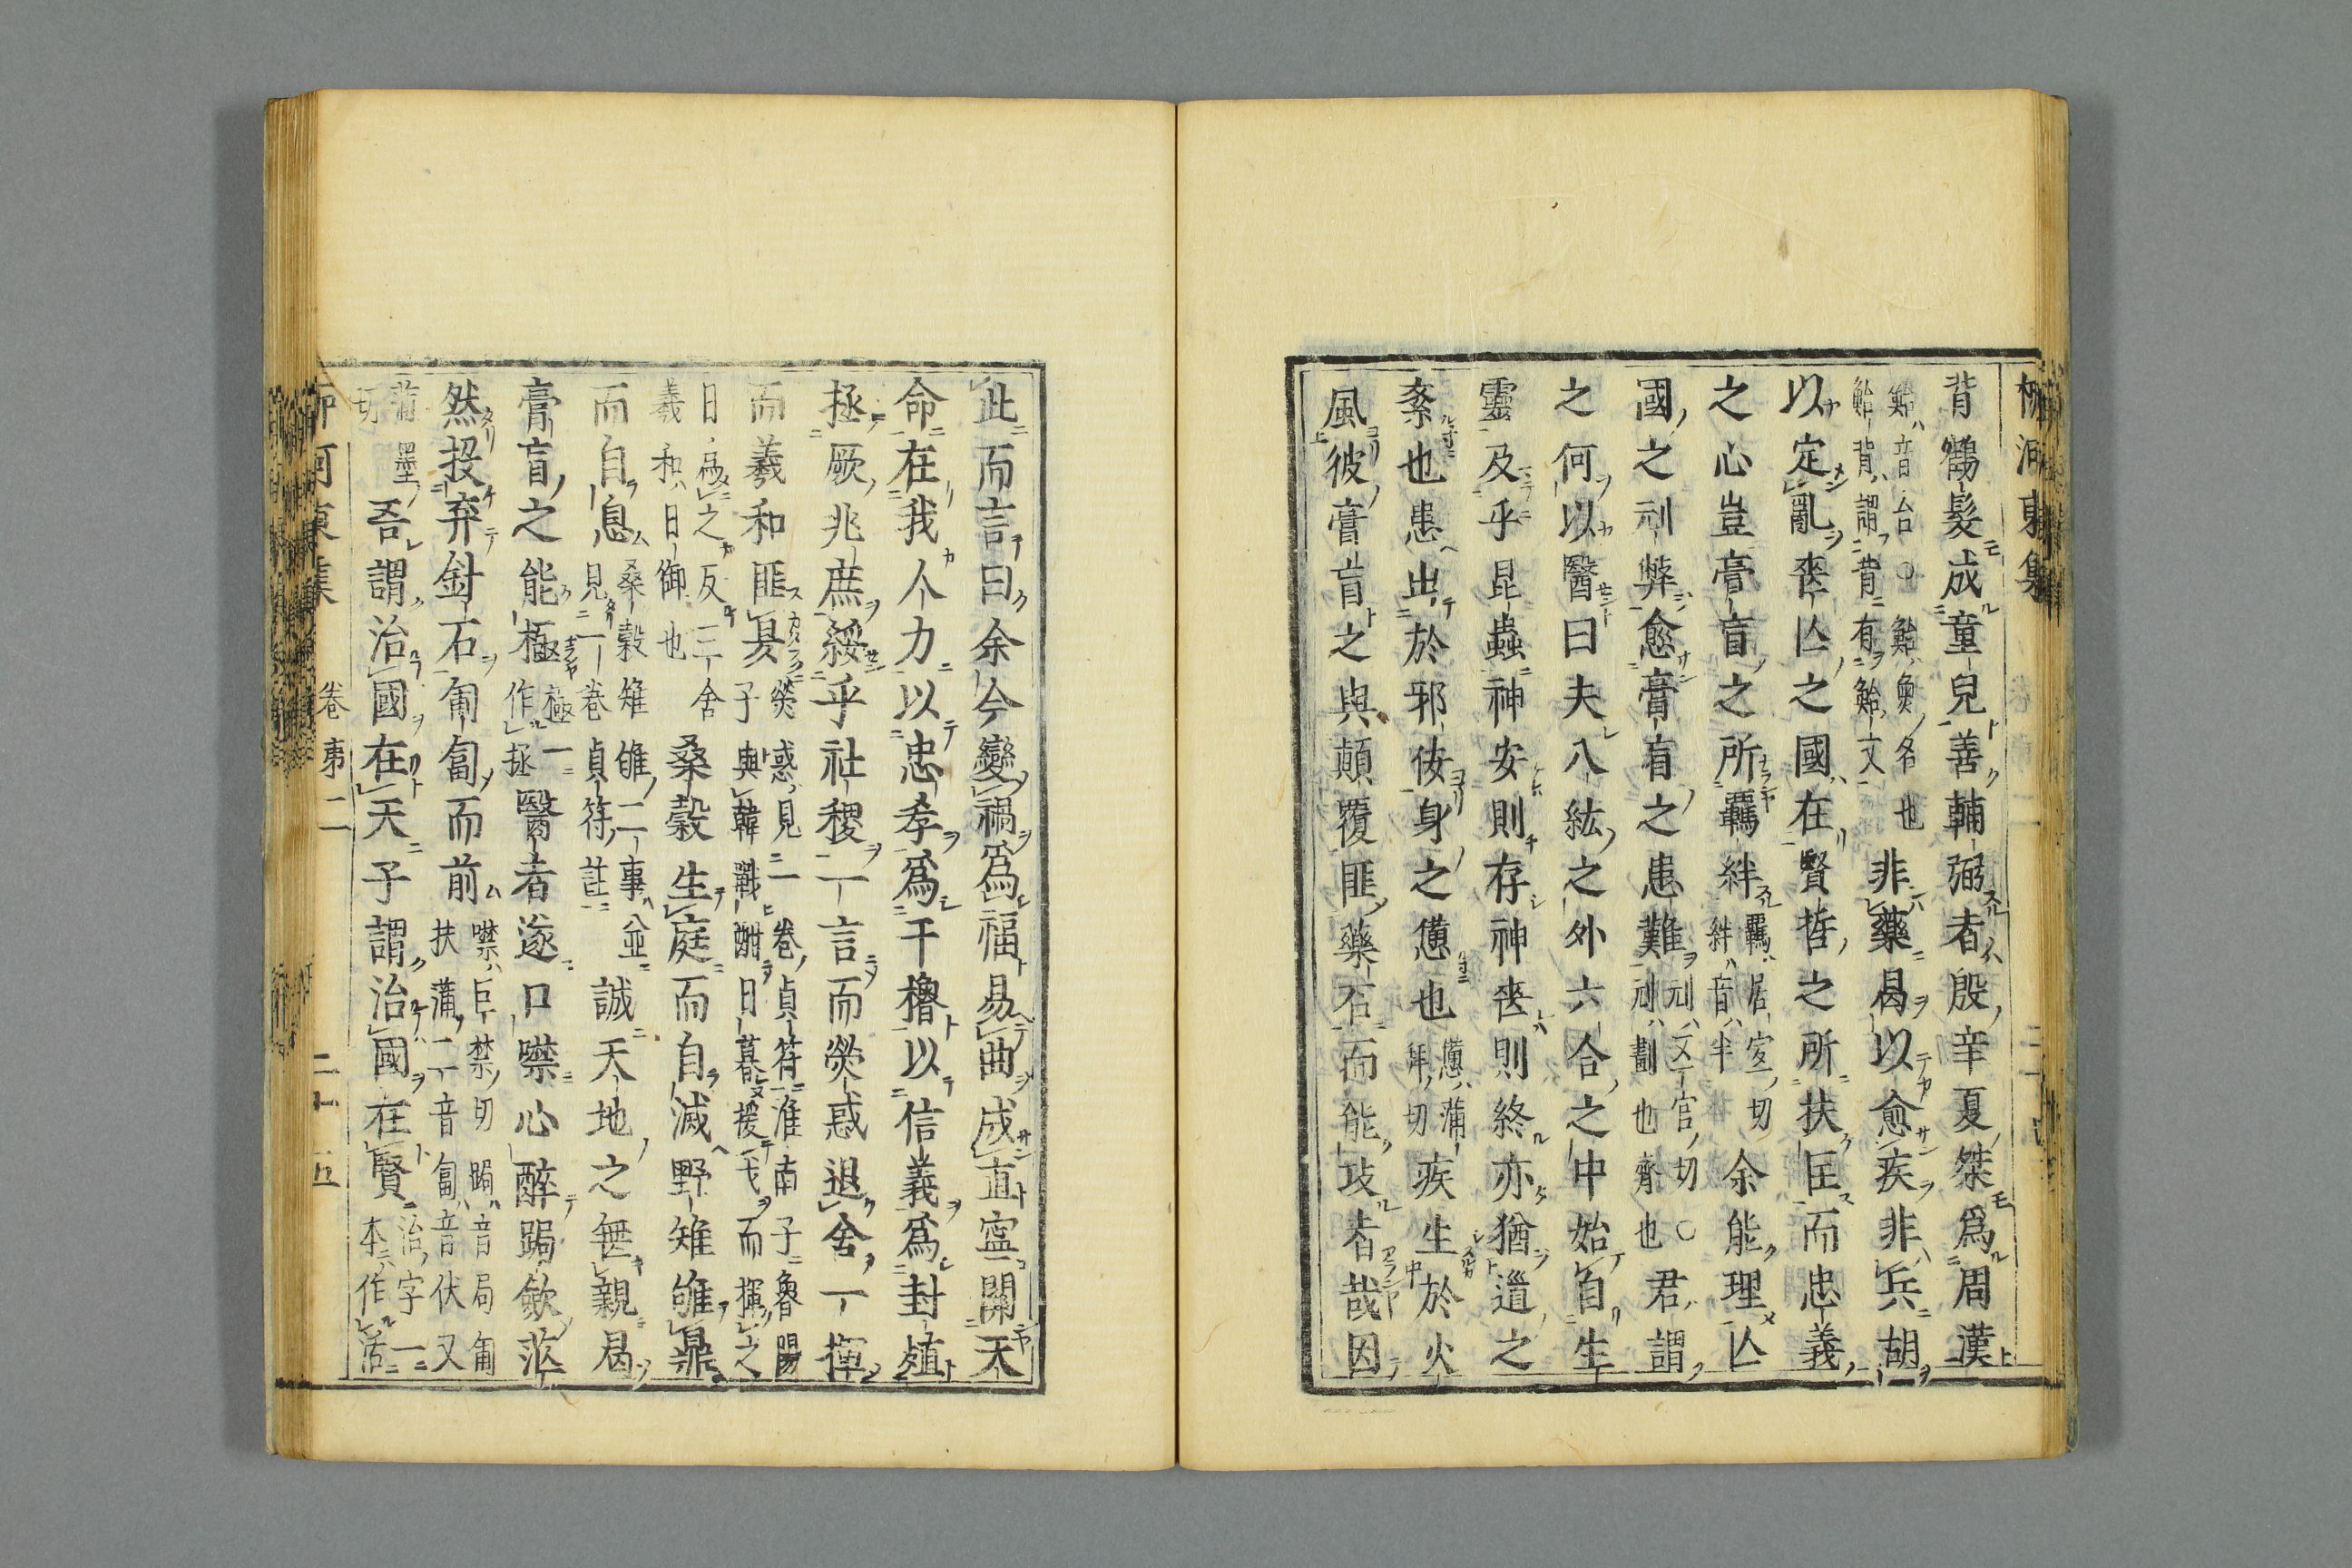 背鶵髮成童兒善輔弼者殷辛夏桀爲周漢
鮐音台〇鮐魚名也
鮐背謂背有鮐文
非藥曷以愈疾非兵胡
以定亂喪亾之國在賢哲之所扶匡而忠義
之心豈膏肓之所羈絆
羈居宜切
絆音半
余能理亾
國之刓弊愈膏肓之患難
刓五官切〇
刓劃也齊也
君謂
之何以醫曰夫八紘之外六合之中始自生
靈及乎昆蟲神安則存神喪則終亦猶道之
紊也患出於邪佞身之憊也
憊蒲
拜切
疾生於火
風彼膏肓之與顛覆匪藥石而能攻者哉因
此而言曰余今變禍爲福易曲成直寧關天
命在我人力以忠孝爲干櫓以信義爲封植
拯厥兆庶綏乎社稷一言而熒惑退舍一揮
而羲和匪昃
熒惑見二卷貞符淮南子魯陽
子與韓戰酣日暮援戈而揮之
日爲之反三舍
羲和日御也
桑穀生庭而自滅野雉雊鼎
而自息
桑穀雉雊二事並
見一卷貞符註
誠天地之無親曷
膏肓之能極
極一
作拯
醫者遂口噤心醉跼斂茫
然投弃針石匍匐而前
噤巨禁切跼音局匍
扶蒲二音匐音伏又
蒲墨
切
吾謂治國在天子謂治國在賢
治字一
本作活
柳河東集 卷第二 二十五